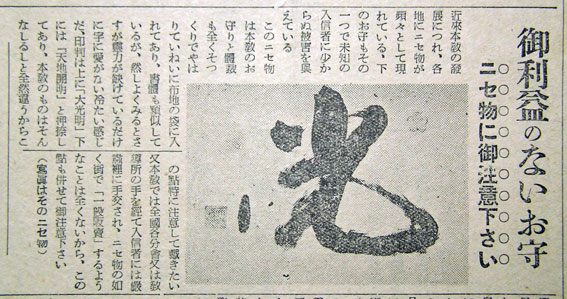 御利益のないお守
○○○○○○○○○○
ニセ物に御注意下さい
近來本教の發
展につれ、各
地にニセ物が
頻々として現
れている、下
のお守もその
一つで未知の
入信者に少か
らぬ被害を與
えている
このニセ物
は本教のお
守りと體裁
も全くそつ
くりでやは
りていねいに布地の袋に入
れてあり、書體も類似して
いるが、然しよくみるとさ
すが靈力が缺けているだけ
に字に愛がない冷たい感じ
だ、印判は上に「大光明」下
には「天地開明」と押捺し
てあり、本教のものはそん
なしるしと全然違うからこ
の點特に注意して戴きたい
又本教では全國各分會又は教
導所の手を經て入信者には嚴
肅裡に手交され、ニセ物の如
く街で「一般販賣」するよう
なことは全くないから、この
點も併せて御注意下さい
(寫眞はそのニセ物)
光